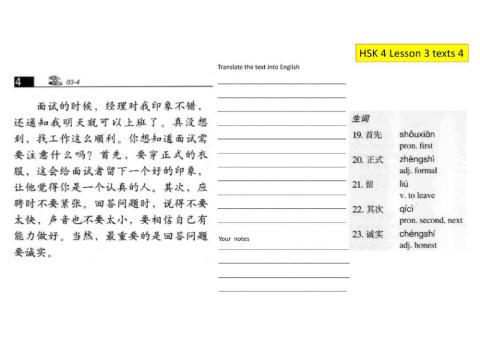 HSK 4 Lesson 3 texts 4
4 03-4
面试的时候，经理对我印象不错，
还通知我明天就可以上班了。真没想
到，找工作这么顺利。你想知道面试需
要注意什么吗？首先，要穿正式的衣
服，这会给面试者留下一个好的印象，
让他觉得你是一个认真的人。其次，应
聘时不要紧张。回答问题时，说得不要
太快，声音也不要太小，要相信自己有
能力做好。当然，最重要的是回答问题
要诚实。
Translate the text into English
Your notes
生词
19. 首先 shǒuxiān
pron. first
20. 正式 zhèngshì
adj. formal
21. 留 liú
v. to leave
22. 其次 qícì
pron. second, next
23. 诚实 chéngshí
adj. honest